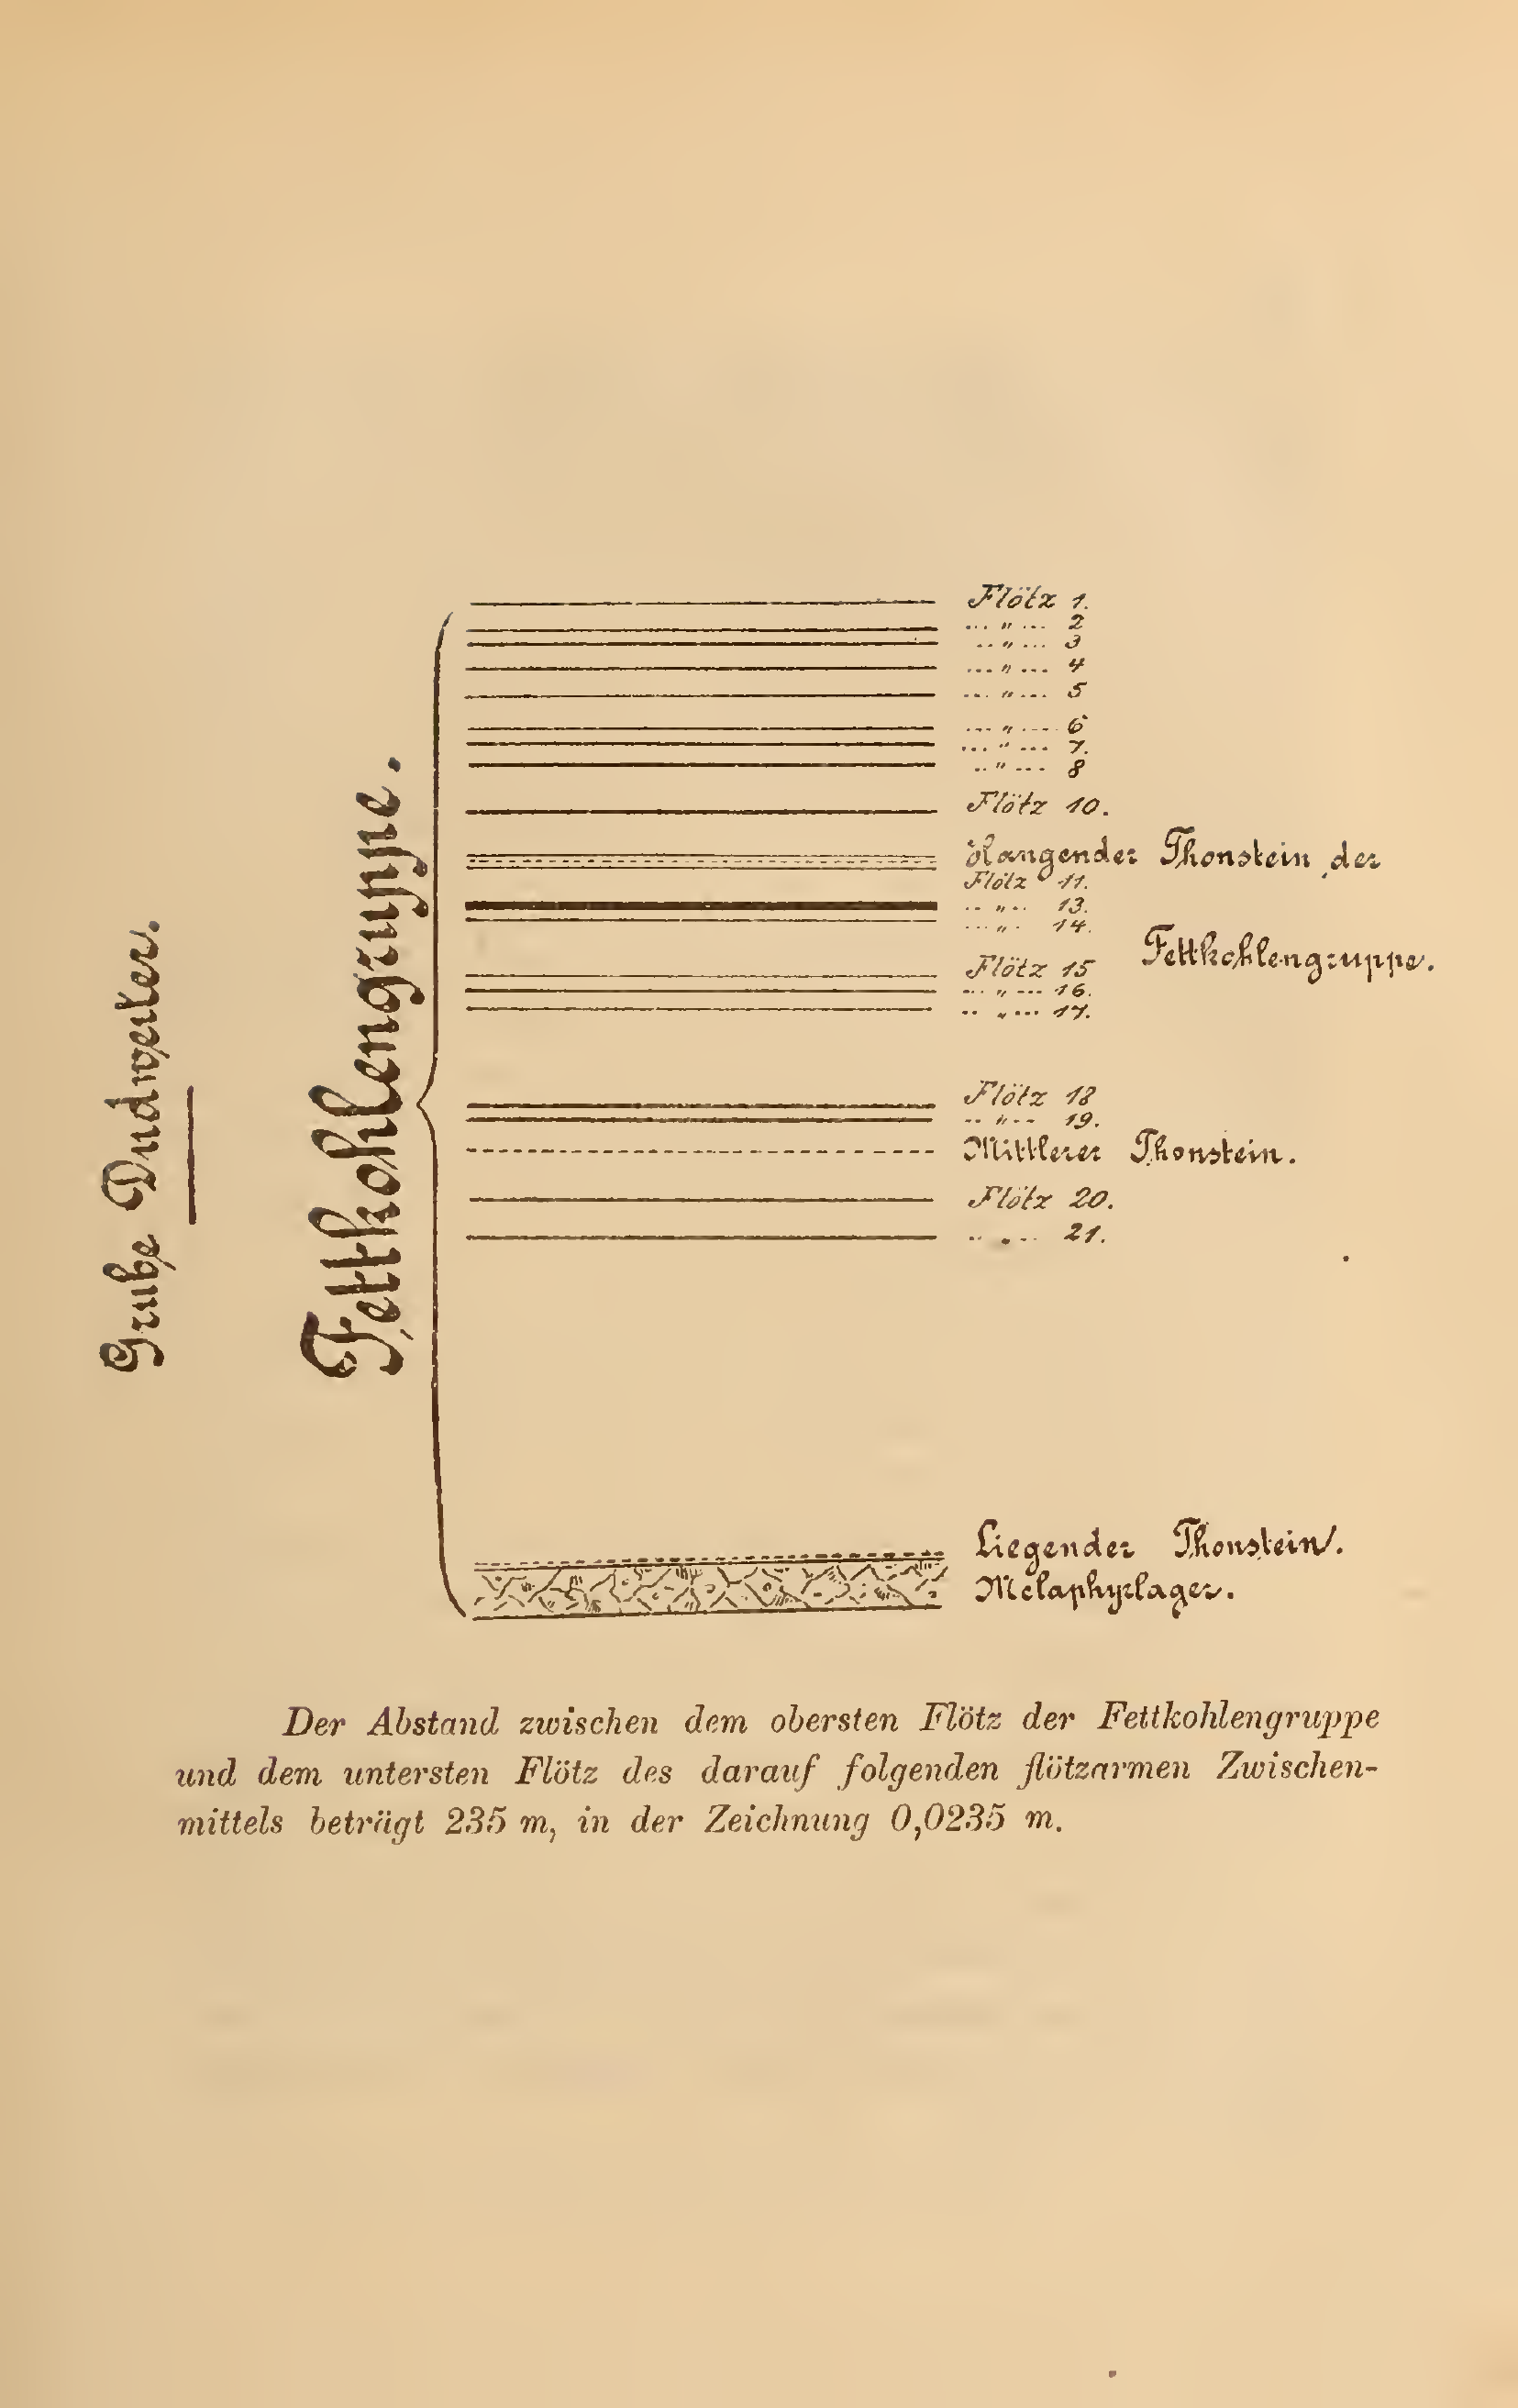 Grube Dudweiler.
Fettkohlengruppe.
Flötz 1.
... " ... 2
.. " ... 3
... " ... 4
... " ... 5
... " .... 6
... " ... 7.
.. " ... 8
Flötz 10.
Hangender Thonstein der
Flötz 11.
.. " .. 13.
... " . 14.
Fettkohlengruppe.
Flötz 15
.. " ... 16.
.. " ... 17.
Flötz 18
.. " .. 19.
Mittlerer Thonstein.
Flötz 20.
.. " .. 21.
Liegender Thonstein.
Melaphyrlager.
Der Abstand zwischen dem obersten Flötz der Fettkohlengruppe
und dem untersten Flötz des darauf folgenden flötzarmen Zwischen-
mittels beträgt 235 m, in der Zeichnung 0,0235 m.